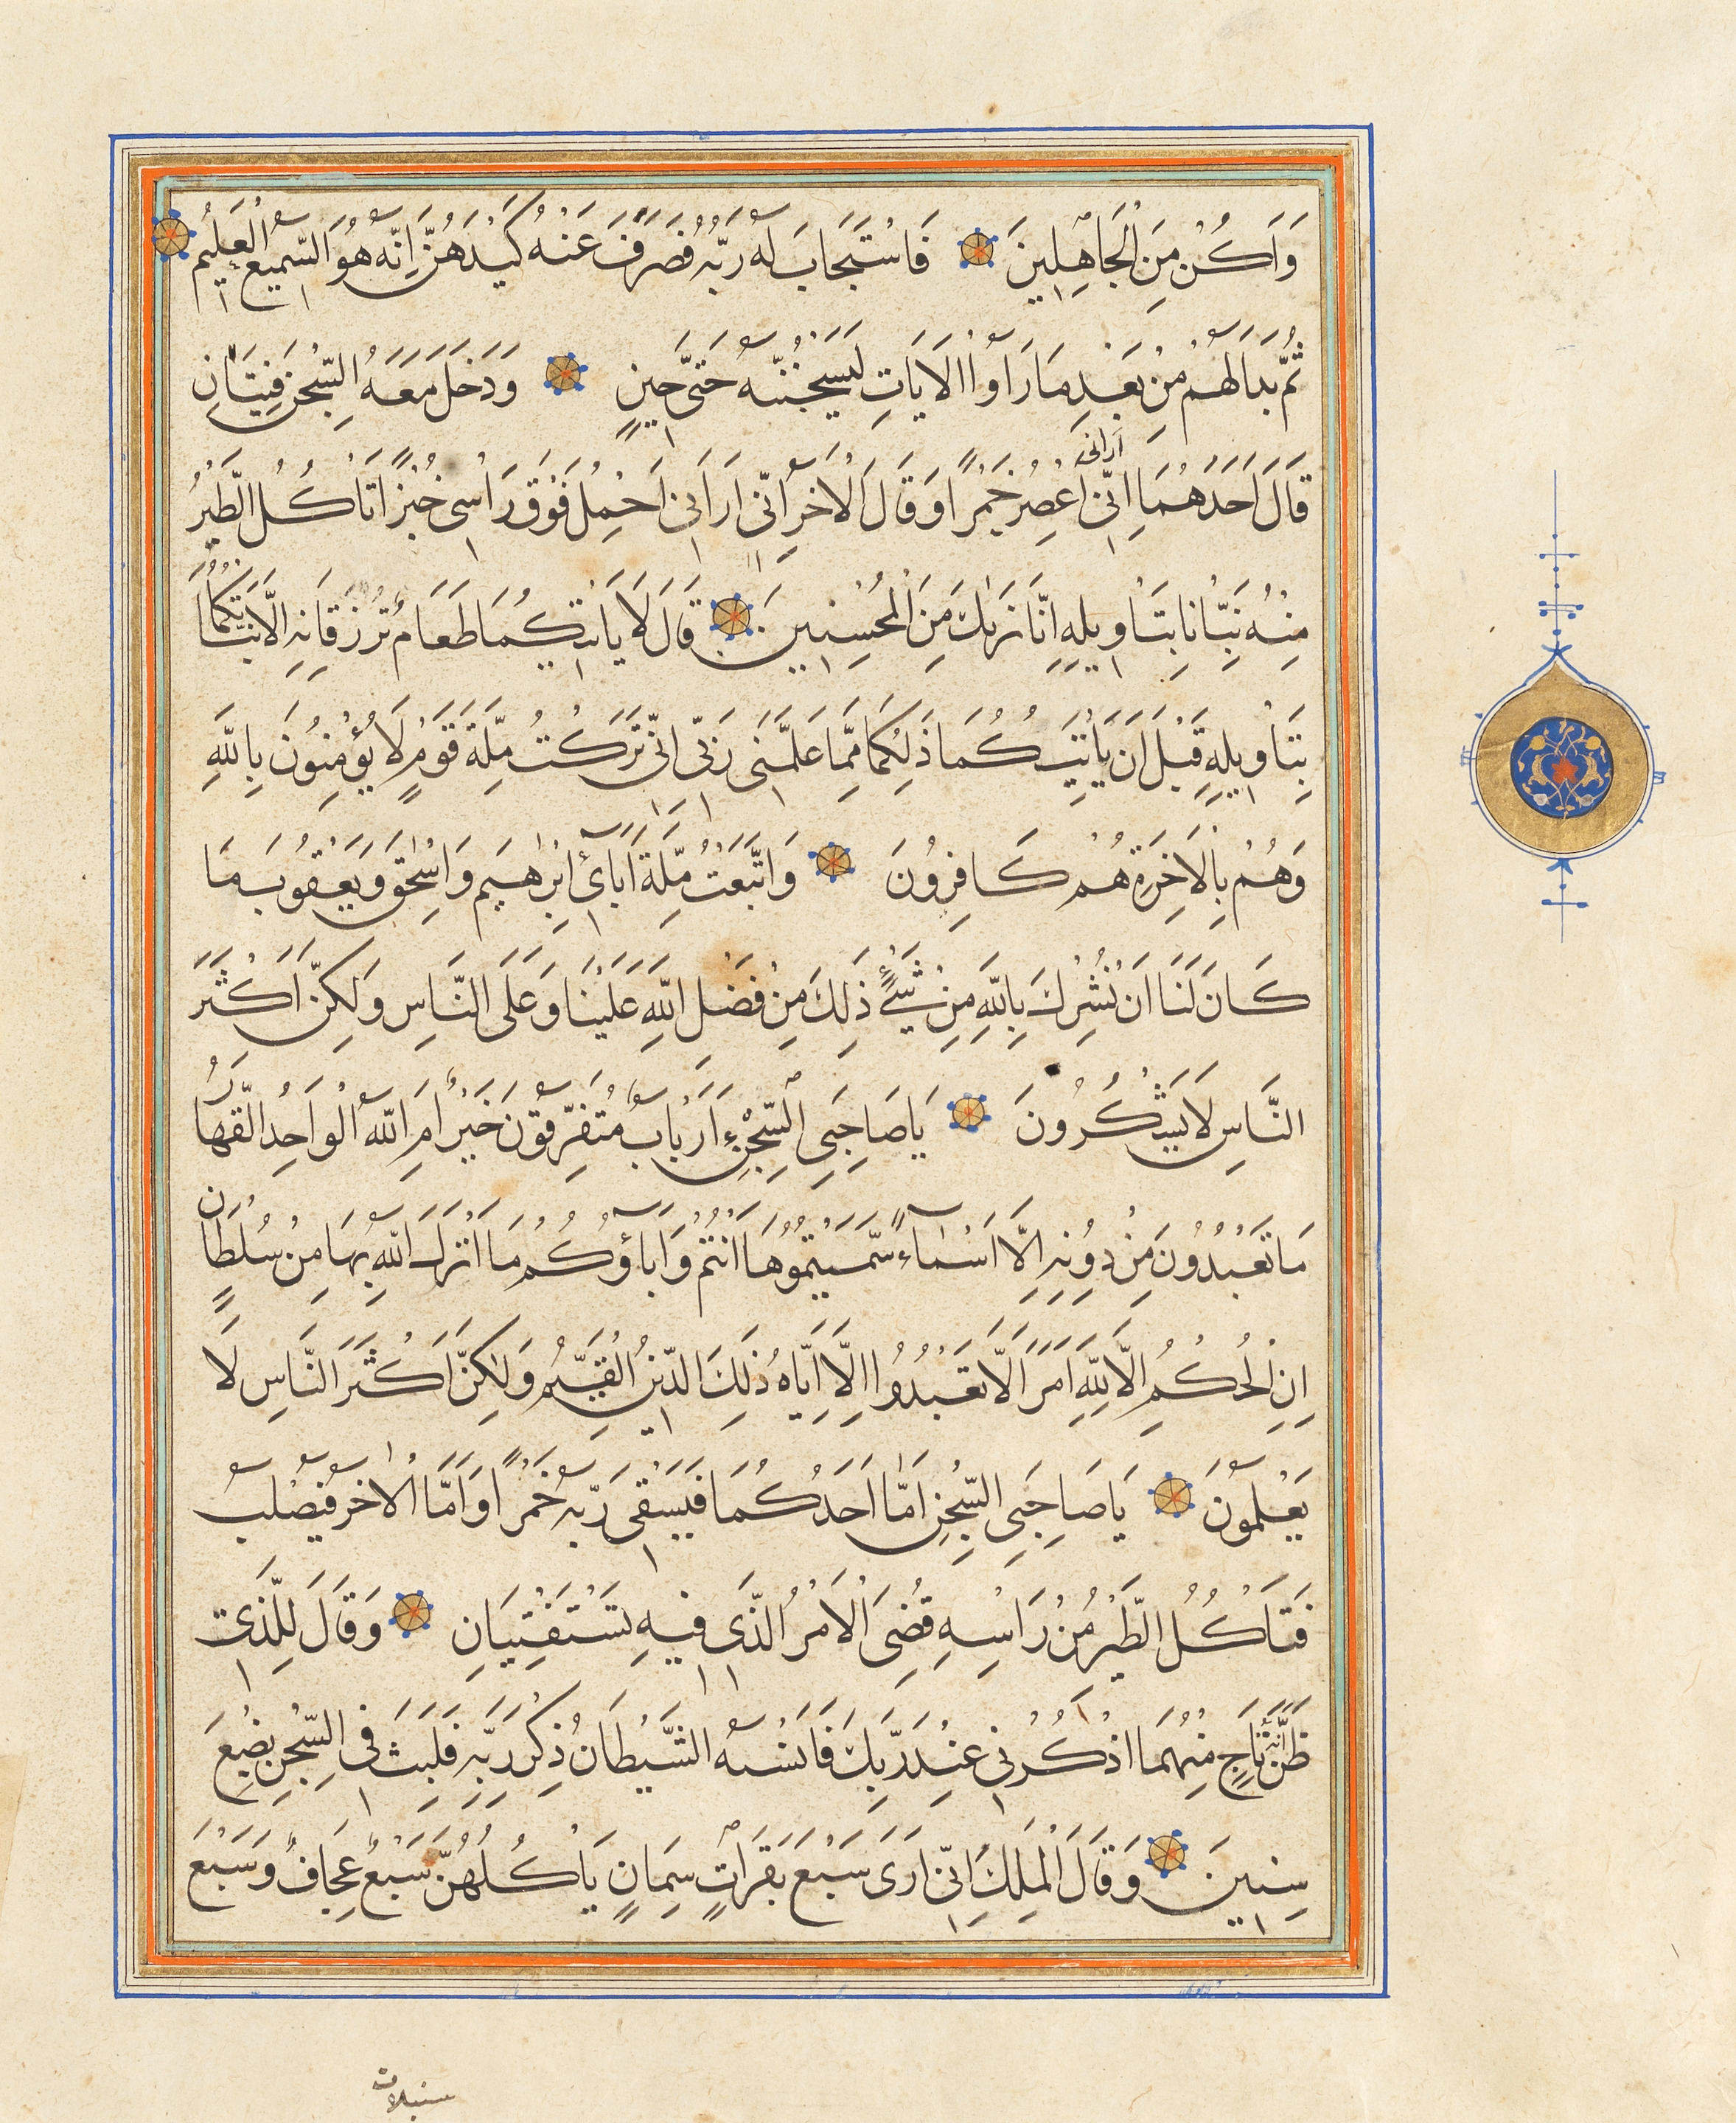 وَاَكُنْ مِنَ الْجَاهِلِينَ فَاسْتَجَابَ لَهُ رَبُّهُ فَصَرَفَ عَنْهُ كَيْدَهُنَّ اِنَّهُ هُوَ السَّمِيعُ الْعَلِيمُ
ثُمَّ بَدَا لَهُمْ مِنْ بَعْدِ مَا رَاَوُا الْاٰيَاتِ لَيَسْجُنُنَّهُ حَتَّى حِينٍ وَدَخَلَ مَعَهُ السِّجْنَ فَتَيَانِ
قَالَ اَحَدُهُمَا اِنِّى اَرَانِى اَعْصِرُ خَمْرًا وَقَالَ الْاٰخَرُ اِنِّى اَرَانِى اَحْمِلُ فَوْقَ رَاْسِى خُبْزًا تَاْكُلُ الطَّيْرُ
مِنْهُ نَبِّئْنَا بِتَاْوِيلِهِ اِنَّا نَرٰيكَ مِنَ الْمُحْسِنِينَ قَالَ لَا يَاْتِيكُمَا طَعَامٌ تُرْزَقَانِهِ اِلَّا نَبَّاْتُكُمَا
بِتَاْوِيلِهِ قَبْلَ اَنْ يَاْتِيَكُمَا ذَلِكُمَا مِمَّا عَلَّمَنِى رَبِّى اِنِّى تَرَكْتُ مِلَّةَ قَوْمٍ لَا يُؤْمِنُونَ بِاللّٰهِ
وَهُمْ بِالْاٰخِرَةِ هُمْ كَافِرُونَ وَاتَّبَعْتُ مِلَّةَ اٰبَائِى اِبْرٰهِيمَ وَاِسْحٰقَ وَيَعْقُوبَ مَا
كَانَ لَنَا اَنْ نُشْرِكَ بِاللّٰهِ مِنْ شَيْءٍ ذَلِكَ مِنْ فَضْلِ اللّٰهِ عَلَيْنَا وَعَلَى النَّاسِ وَلَكِنَّ اَكْثَرَ
النَّاسِ لَا يَشْكُرُونَ يَا صَاحِبَىِ السِّجْنِ ءَاَرْبَابٌ مُتَفَرِّقُونَ خَيْرٌ اَمِ اللّٰهُ الْوَاحِدُ الْقَهَّارُ
مَا تَعْبُدُونَ مِنْ دُونِهِ اِلَّا اَسْمَاءً سَمَّيْتُمُوهَا اَنْتُمْ وَاٰبَاؤُكُمْ مَا اَنْزَلَ اللّٰهُ بِهَا مِنْ سُلْطَانٍ
اِنِ الْحُكْمُ اِلَّا لِلّٰهِ اَمَرَ اَلَّا تَعْبُدُوا اِلَّا اِيَّاهُ ذَلِكَ الدِّينُ الْقَيِّمُ وَلٰكِنَّ اَكْثَرَ النَّاسِ لَا
يَعْلَمُونَ يَا صَاحِبَىِ السِّجْنِ اَمَّا اَحَدُكُمَا فَيَسْقِى رَبَّهُ خَمْرًا وَاَمَّا الْاٰخَرُ فَيُصْلَبُ
فَتَاْكُلُ الطَّيْرُ مِنْ رَاْسِهِ قُضِىَ الْاَمْرُ الَّذِى فِيهِ تَسْتَفْتِيَانِ وَقَالَ لِلَّذِى
ظَنَّ اَنَّهُ نَاجٍ مِنْهُمَا اذْكُرْنِى عِنْدَ رَبِّكَ فَاَنْسٰهُ الشَّيْطَانُ ذِكْرَ رَبِّهِ فَلَبِثَ فِى السِّجْنِ بِضْعَ
سِنِينَ وَقَالَ الْمَلِكُ اِنِّى اَرَى سَبْعَ بَقَرَاتٍ سِمَانٍ يَاْكُلُهُنَّ سَبْعٌ عِجَافٌ وَسَبْعَ
سنبلات